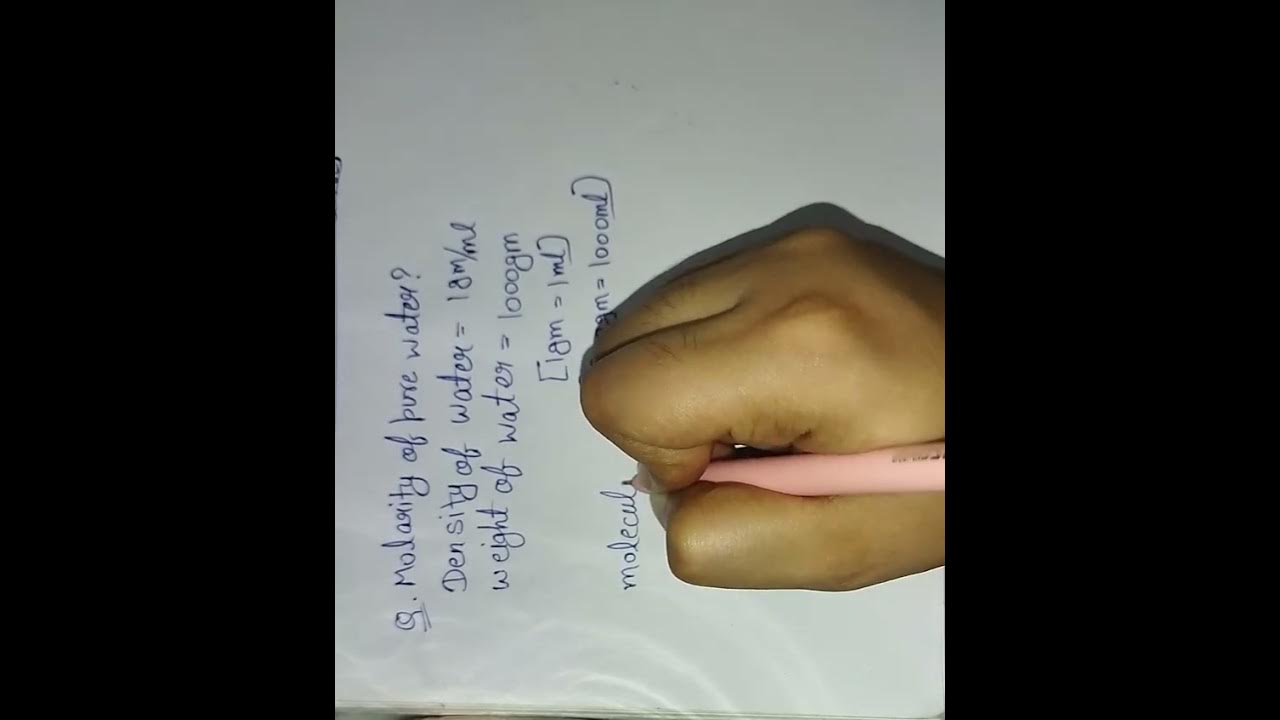 Q. Molarity of pure water?
Density of water = 1gm/ml
weight of water = 1000gm
[1gm = 1ml]
gm = 1000ml]
molecul